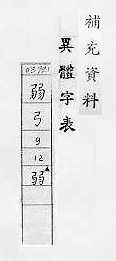 補充資料
異體字表
03791
弱
弓
9
12
弱